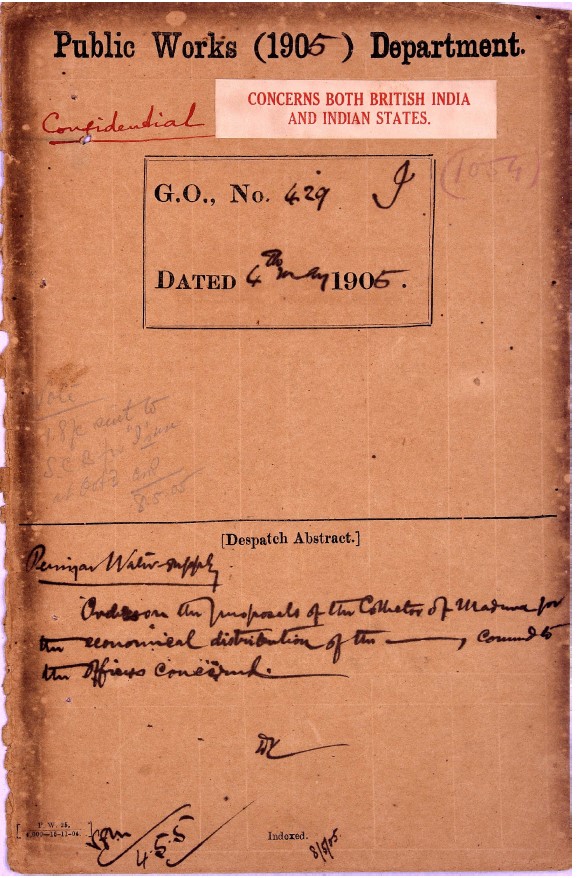 Public Works (1905) Department.
Confidential
CONCERNS BOTH BRITISH INDIA
AND INDIAN STATES.
(1054)
G.O., No. 429 I
DATED 4th May 1905.
Note
sent to
8.5.05
[Despatch Abstract.]
Periyar Water-supply
Orders on the proposals of the Collector of Madura for
the economical distribution of the ———, commd to
the officers concerned.
[P. W. 25.
4,000—15-11-04.]
Indexed.
8/5/05